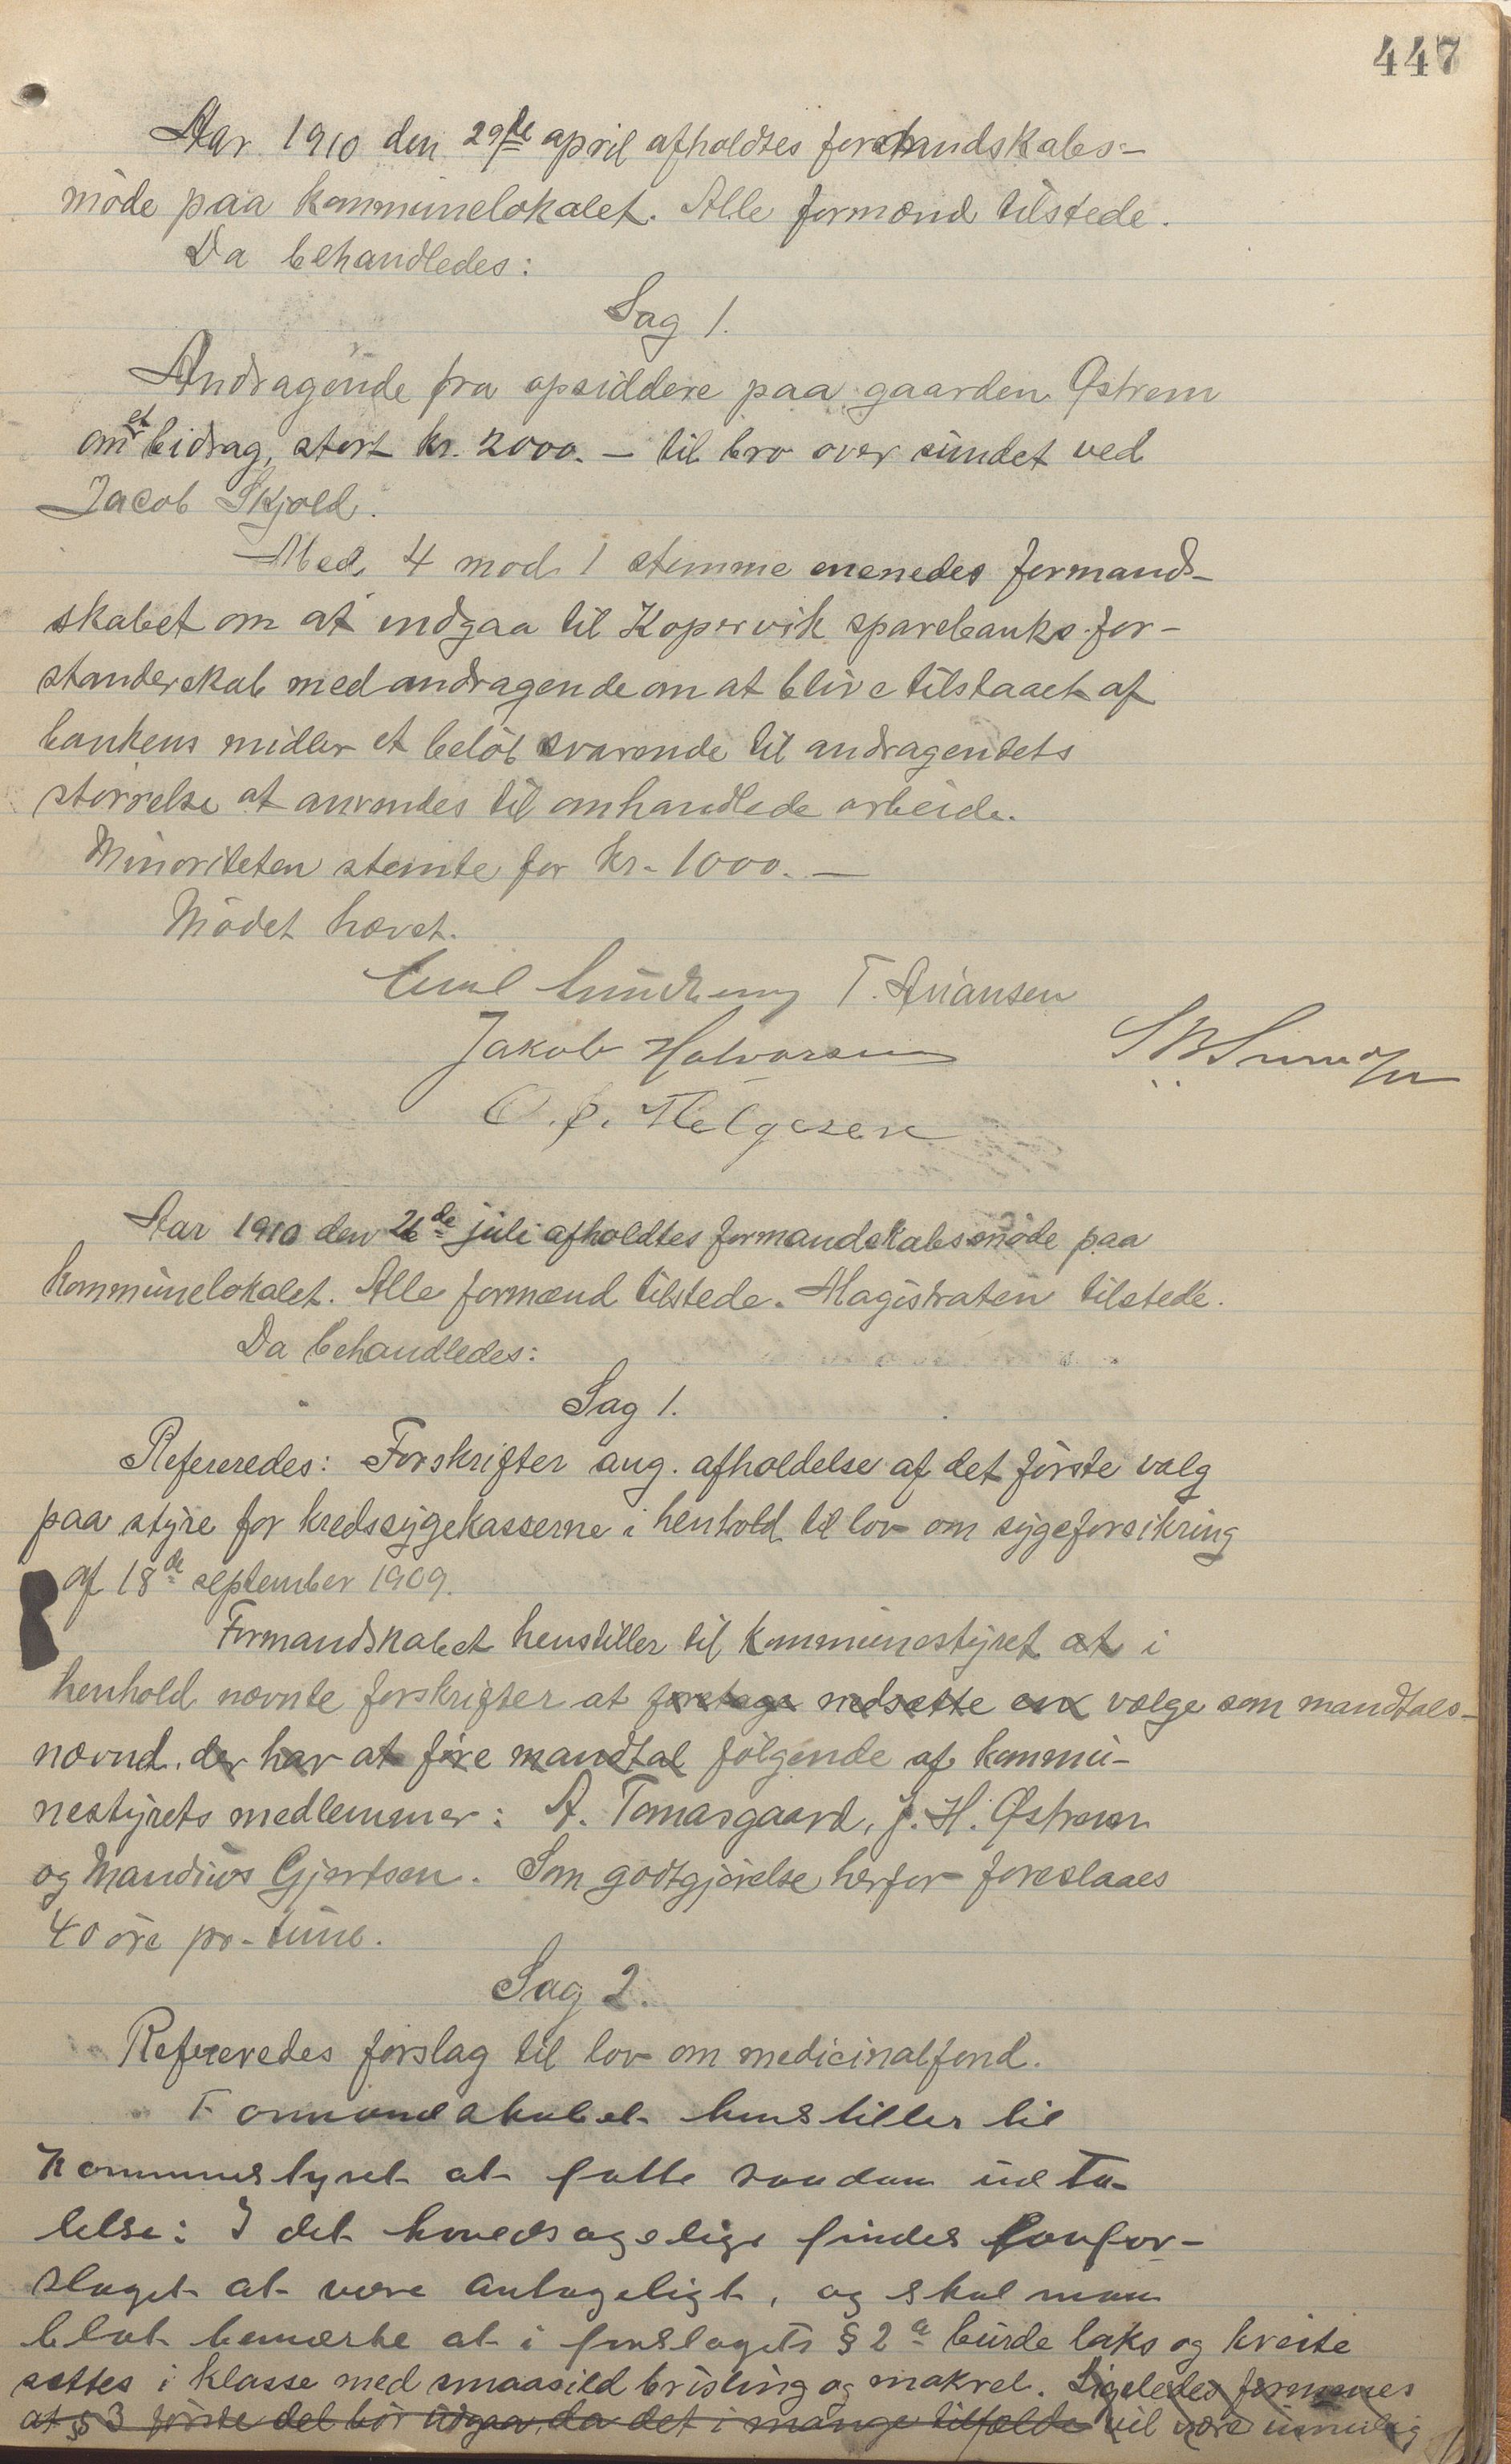 447
Aar 1910 den 29de april afholdtes formandskabs-
möde paa kommunelokalet. Alle formænd tilstede.
Da behandledes:
Sag 1.
Andragende fra opsiddere paa gaarden Østrem
om et bidrag, stort kr. 2000.- til bro over sundet ved
Jacob Skjold.
Med 4 mod 1 stemme enenedes formand-
skabet om at indgaa til Kopervik sparebanks for-
standerskab med andragende om at blive tilstaaet af
bankens midler et belöb svarende til andragendets
störrelse at anvendes til omhandlede arbeide.
Minoriteten stemte for kr. 1000.-
Mödet hævet.
T. Ariansen
Jakob Halvorsen
O. J. Helgesen
Aar 1910 den 26de juli afholdtes formandskabsmöde paa
kommunelokalet. Alle formænd tilstede. Magistraten tilstede.
Da behandledes:
Sag 1.
Refereredes: Forskrifter ang. afholdelse af det förste valg
paa styre for kredssygekasserne i henhold til lov om sygeforsikring
af 18de september 1909.
Formandskabet henstiller til kommunestyret at i
henhold nævnte forskrifter at foretage nedsætte en vælge som mandtals-
nævnd der har at före mandtal fölgende af kommu-
nestyrets medlemmer: A. Tomasgaard, J. H. Østrem
og Mandius Gjertsen. Som godtgjörelse herfor foreslaaes
40 öre pr. time.
Sag 2.
Refereredes forslag til lov om medicinalfond.
Formandskabet henstiller til
Kommunestyret at fatte saadan udta-
lelse: I det hovedsagelige findes lovfor-
slaget at være antageligt, og skal man
blot bemærke at i forslagets § 2 a burde laks og kveite
sættes i klasse med smaasild brisling og makrel. Ligeledes formenes
at § 3 förste del bör udgaa, da det i mange tilfælde vil være umulig